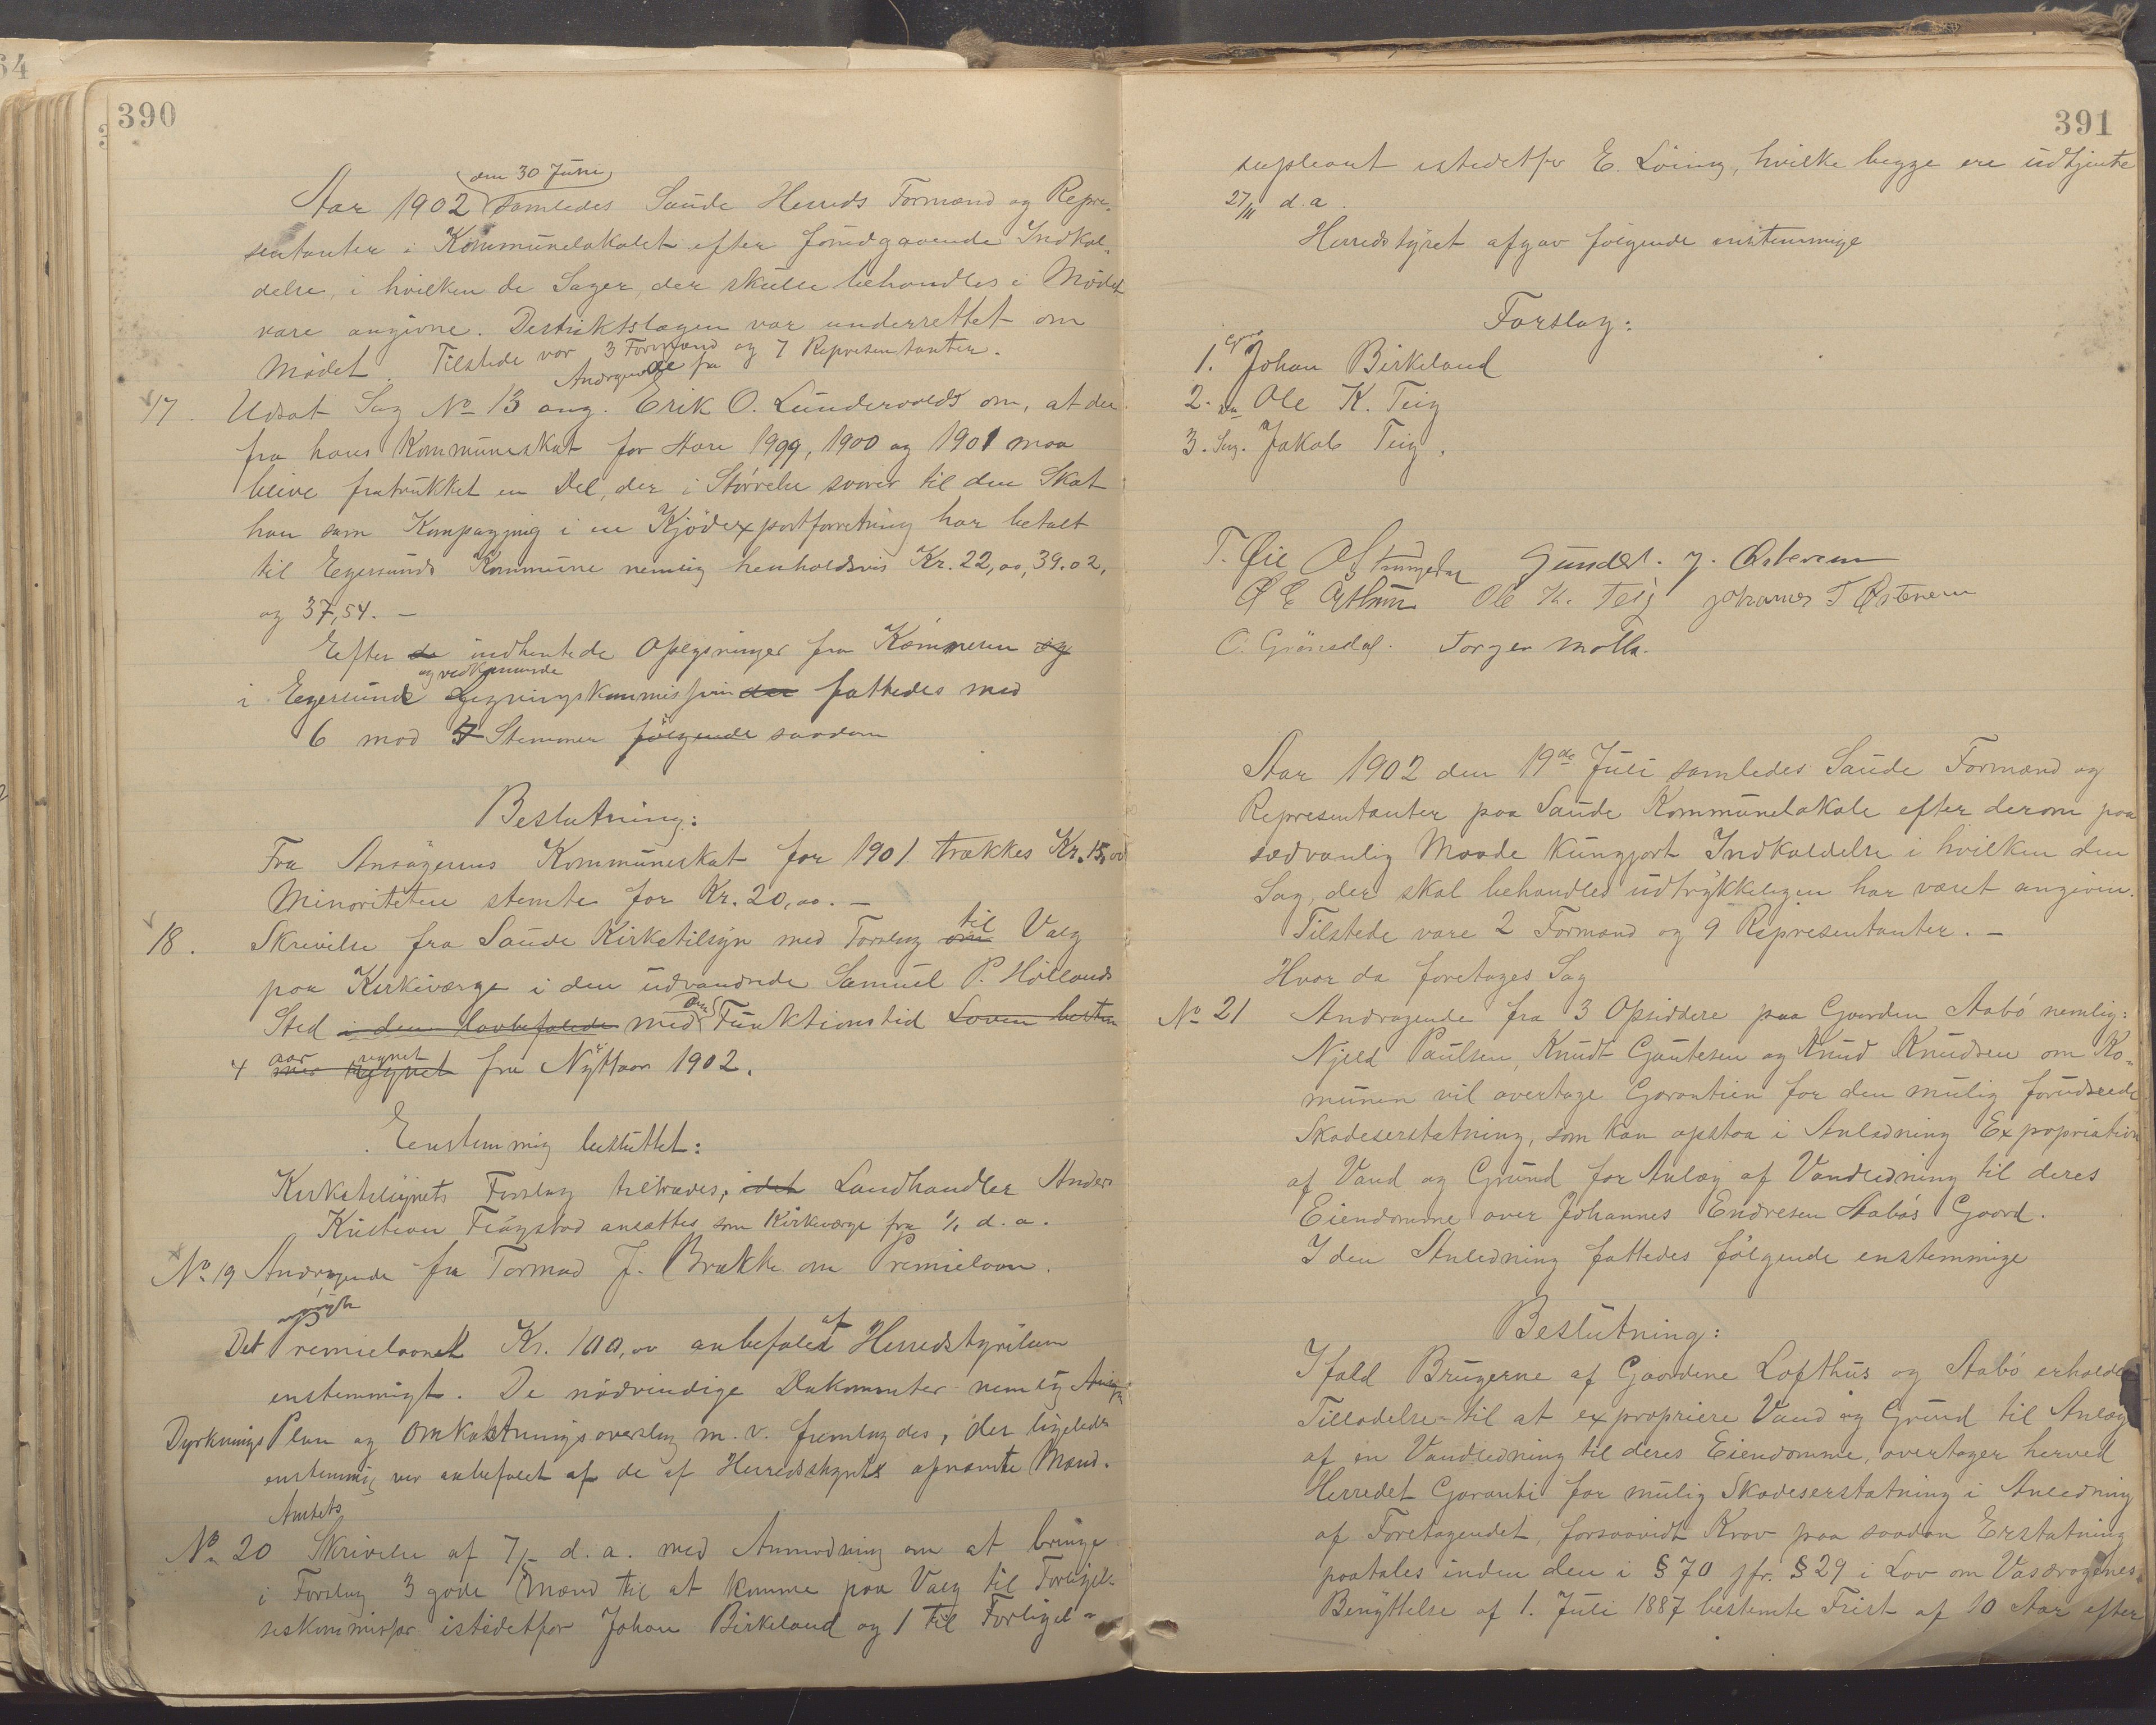 390
den 30 Juni
Aar 1902 samledes Saude Herreds Formænd og Repræ-
sentanter i Kommunelokalet efter forudgaaende Indkal-
delse, i hvilken de Sager, der skulle behandles i Mödet
vare angivne. Destriktslægen var underrettet om
Mödet. Tilstede var 3 Formænd og 7 Representanter.
Andragende fra
17. Udsat Sag No 13 ang. Erik O. Lundervolds om, at der
fra hans Kommuneskat for Aare 1899, 1900 og 1901 maa
blive fratrukket en Del, der i Störrelse svarer til den Skat
han som Kompagnig i en Kjödexportforretning har betalt
til Egersunds Kommune nemlig henholdsvis Kr. 22,00, 39.02,
og 37,54. —
Efter de indhentede Oplysninger fra Kæmneren og
og vedkommende
i Egersunds Ligningskommission der fattedes med
6 mod 4 Stemmer fölgende saadan
Beslutning:
Fra Ansögerens Kommuneskat for 1901 trækkes Kr. 15,00
Minoriteten stemte for Kr. 20,00. —
18. Skrivelse fra Saude Kirketilsyn med Forslag om til Valg
paa Kirkeværge i den udvandrede Samuel P. Höllands
Sted i den lovbefalede med den Funktionstid Loven bestem
aar regnet
4 regnet fra Nyttaar 1902.
Eenstemmig besluttet:
Kirketilsynets Forslag tiltrædes, idet Landhandler Anders
Kristian Flögstad ansættes som Kirkeværge fra 1/1 d. a.
No 19 Andragende fra Tormod J. Brække om Premielaan.
Det Premielaanet Kr. 100,00 anbefales af Herredstyrelsen
enstemmigt. De nödvendige Dokumenter nemlig
Dyrknings Plan og Omkostningsoverslag m. v. fremlagdes, der ligeledes
enstemmig var anbefalet af de af Herredsstyrets opnævnte Mænd.
Amtets
No 20 Skrivelse af 7/5 d. a. med Anmodning om at bringe
i Forslag 3 gode Mænd til at komme paa Valg til Forligel-
seskommissær istedetfor Johan Birkeland og 1 til Forligel-
391
supleant istedetfor E. Löing, hvilke begge ere udtjente
27/11 d. a.
Herredstyret afgav fölgende enstemmige
Forslag:
1. Johan Birkeland
2. Ole K. Teig
3. Jakob Teig.
T. Øie Gunder. J. Østerem
Ole K. Teig Johannes T Østerem
O. Grönsdal. Torger Motla.
Aar 1902 den 19de Juli samledes Saude Formænd og
Representanter paa Saude Kommunelokale efter derom paa
sædvanlig Maade kungjort Indkaldelse i hvilken den
Sag, der skal behandles udtrykkeligen har været angiven.
Tilstede vare 2 Formænd og 9 Representanter. —
Hvor da foretages Sag
No 21 Andragende fra 3 Opsiddere paa Gaarden Aabö nemlig:
Njeld Paulsen, Knudt Gautesen og Knud Knudsen om Ko-
munen vil overtage Garantien for den mulig forudseede
Skadeserstatning, som kan opstaa i Anledning Expropriation
af Vand og Grund for Anlæg af Vandledning til deres
Eiendomme over Johannes Endresen Aabös Gaard.
I den Anledning fattedes fölgende enstemmige
Beslutning:
Ifald Brugerne af Gaardene Lofthus og Aabö erholder
Tilladelse til at expropriere Vand og Grund til Anlæg
af en Vandledning til deres Eiendomme, overtager herved
Herredet Garanti for mulig Skadeserstatning i Anledning
af Foretagendet, forsaavidt Krav paa saadan Erstatning
paatales inden den i § 70 jfr. § 29 i Lov om Vasdragenes
Benyttelse af 1. Juli 1887 bestemte Frist af 10 Aar efter